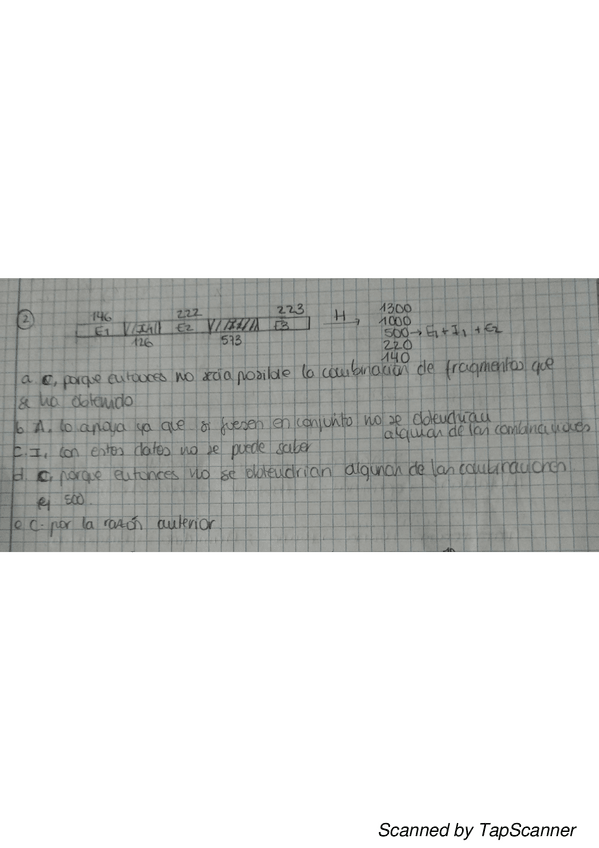 2
146 222 223 H 1300
E1 IH1 E2 E3 1000
126 573 500 → E1 + I1 + E2
220
140
a. C, porque entonces no sería posible la combinación de fragmentos que
se ha obtenido
b A. lo apoya ya que si fuesen en conjunto no se obtendrían
algunan de lan combinaciones
c. I, con estos datos no se puede saber
d. C. porque entonces no se obtendrían algunan de lan combinaciones
ej 500.
e C. por la razón anterior
Scanned by TapScanner